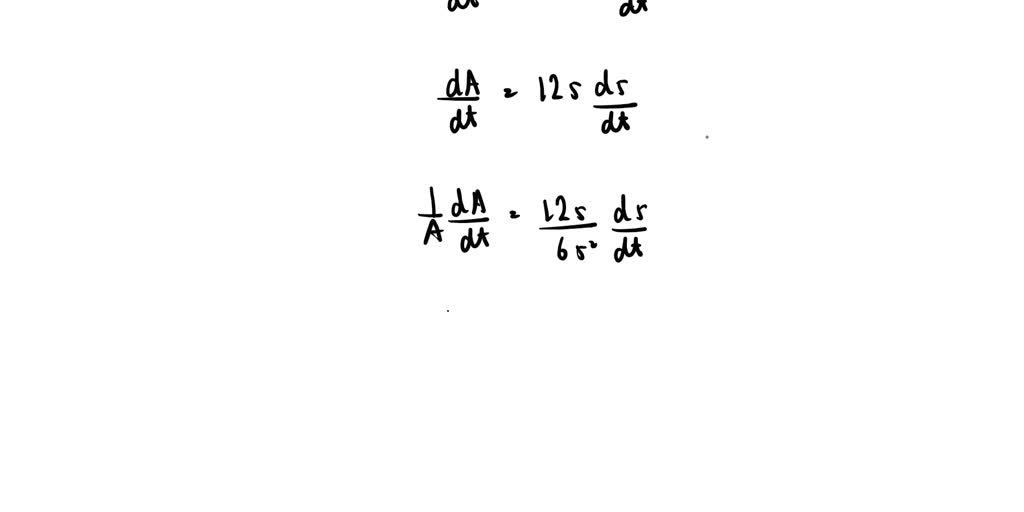 dt dt
dA/dt = 12s ds/dt
1/A dA/dt = 12s/6s² ds/dt